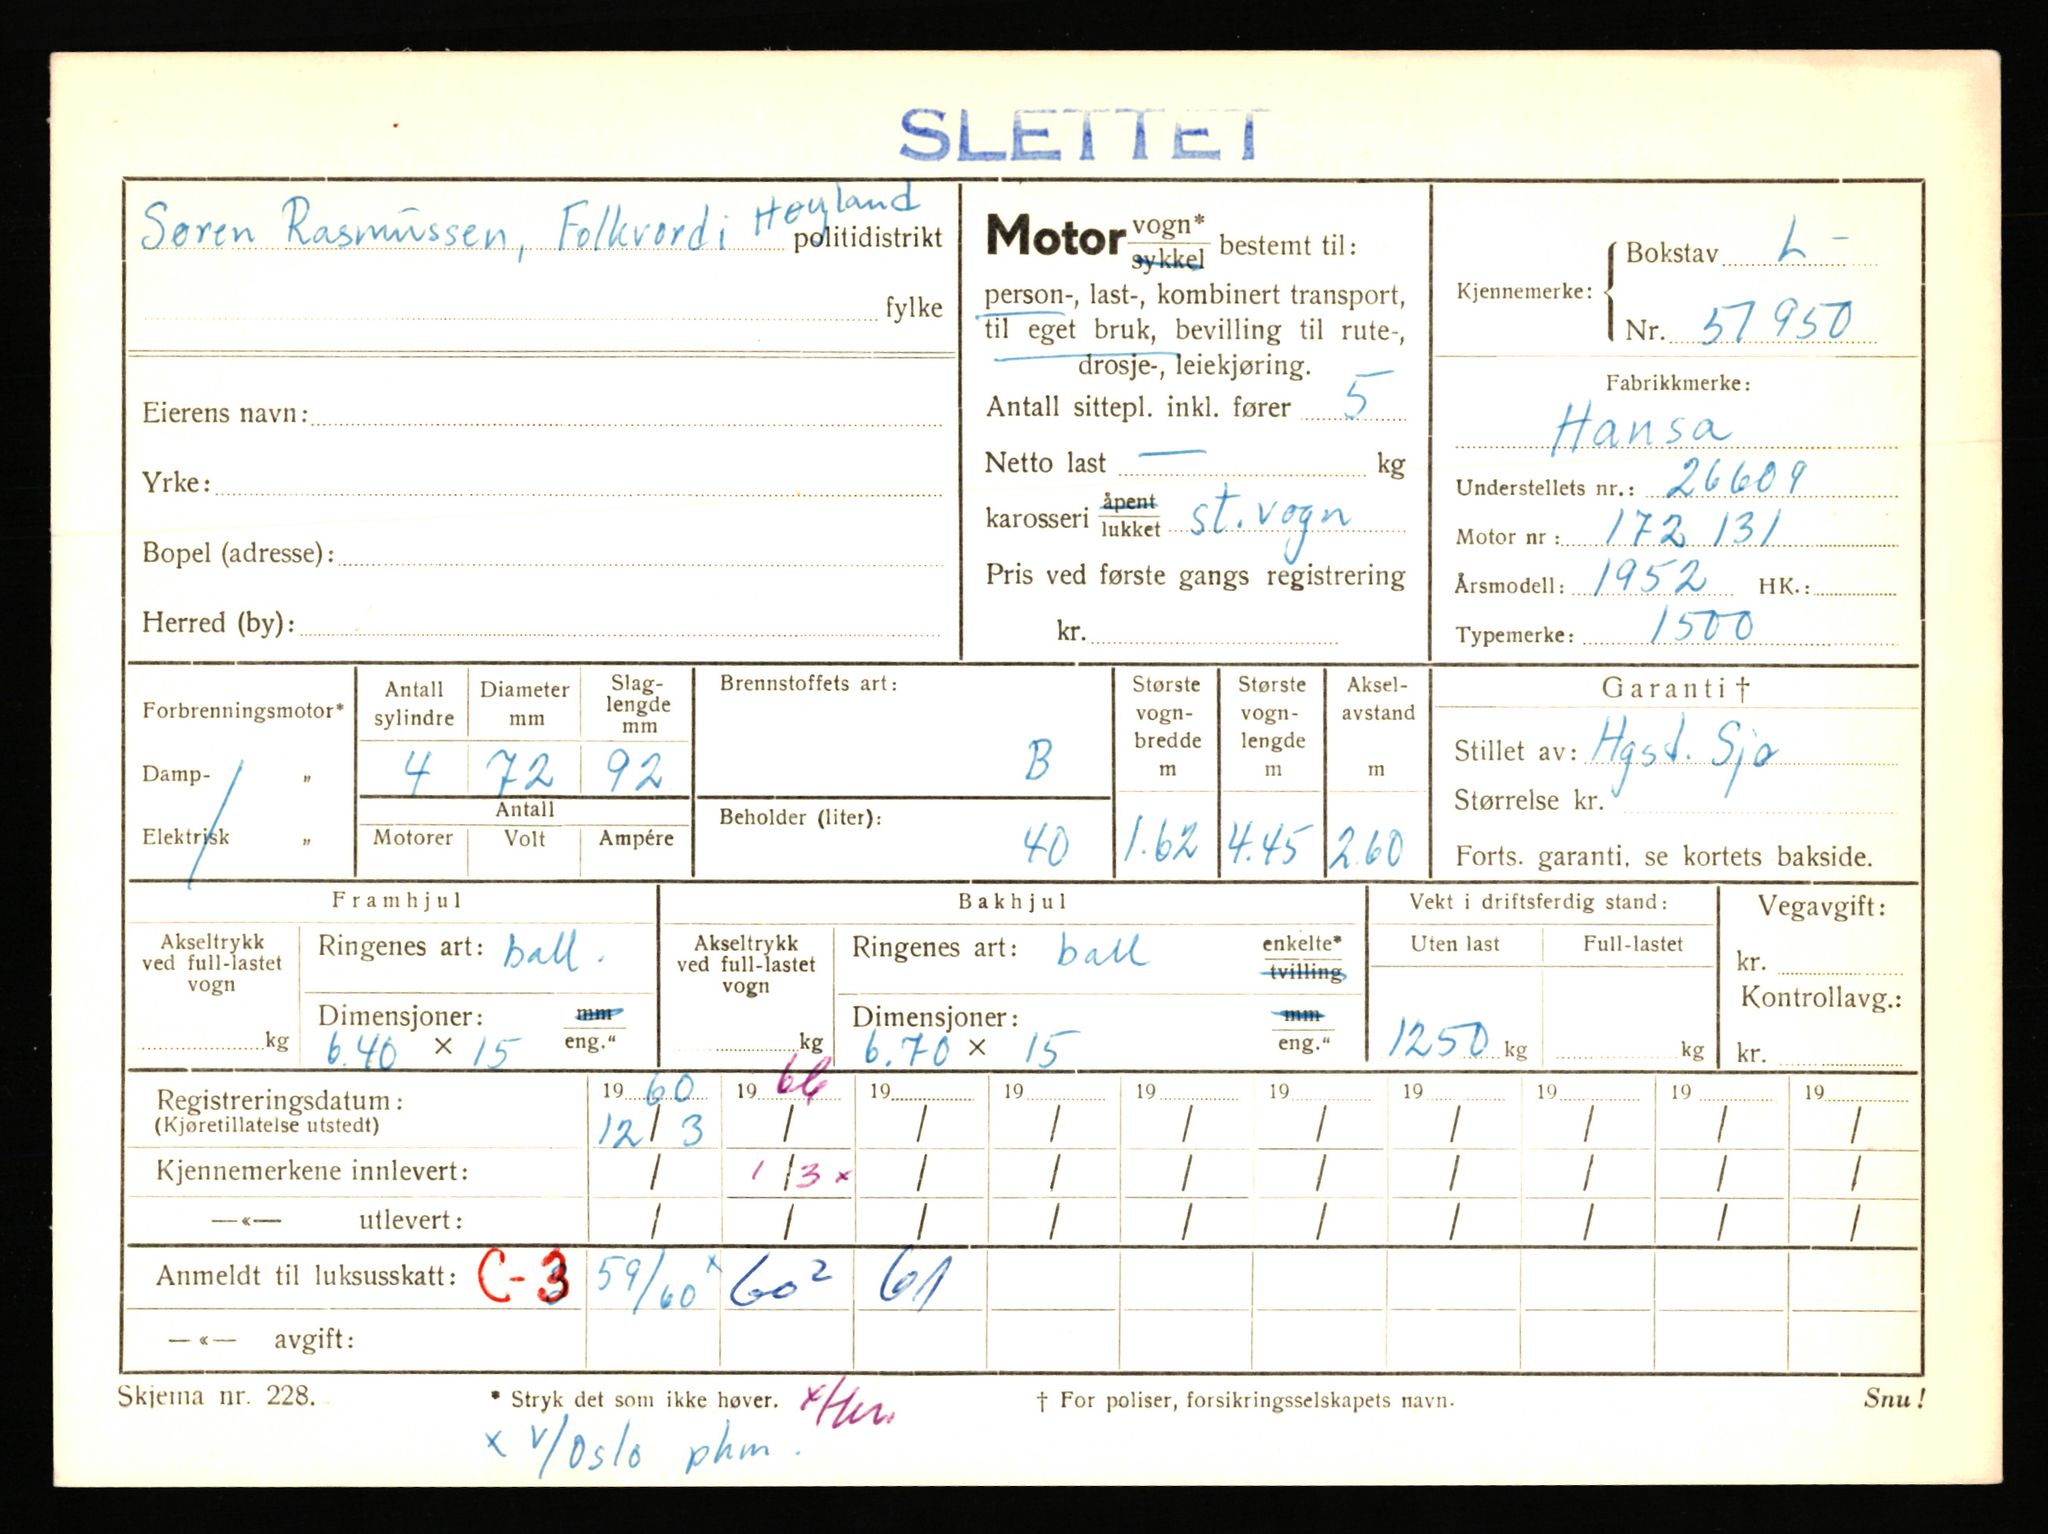 SLETTET
Søren Rasmussen, Folkvord i Høyland
politidistrikt
fylke
Eierens navn:
Yrke:
Bopel (adresse):
Herred (by):
Motor vogn* sykkel bestemt til:
person-, last-, kombinert transport,
til eget bruk, bevilling til rute-,
drosje-, leiekjøring.
Antall sittepl. inkl. fører 5
Netto last — kg
karosseri åpent lukket st.vogn
Pris ved første gangs registrering
kr.
Kjennemerke: Bokstav L-
Nr. 57950
Fabrikkmerke:
Hansa
Understellets nr.: 26609
Motor nr: 172 131
Årsmodell: 1952 HK.:
Typemerke: 1500
Forbrenningsmotor*
Damp- „
Elektrisk „
Antall sylindre
4
Diameter mm
72
Slag-
lengde
mm
92
Antall
Motorer Volt Ampére
Brennstoffets art:
B
Beholder (liter):
40
Største
vogn-
bredde
m
1.62
Største
vogn-
lengde
m
4.45
Aksel-
avstand
m
2.60
Garanti †
Stillet av: Hgsd. Sjø
Størrelse kr.
Forts. garanti, se kortets bakside.
Framhjul
Akseltrykk
ved full-lastet
vogn
kg
Ringenes art: ball.
Dimensjoner: mm
6.40 × 15 eng."
Bakhjul
Akseltrykk
ved full-lastet
vogn
kg
Ringenes art: ball enkelte* tvilling
Dimensjoner: mm
6.70 × 15 eng."
Vekt i driftsferdig stand:
Uten last Full-lastet
1250 kg kg
Vegavgift:
kr.
Kontrollavg.:
kr.
Registreringsdatum: 19 60 19 19 19 19 19 19 19 19 19
(Kjøretillatelse utstedt) 12/3 / / / / / / / / /
Kjennemerkene innlevert: / 1/3 x / / / / / / / /
—«— utlevert: / / / / / / / / / /
Anmeldt til luksusskatt: C-3 59/60 x 60² 61
—«— avgift:
Skjema nr. 228.
* Stryk det som ikke høver.
† For poliser, forsikringsselskapets navn.
Snu!
x v/Oslo phm.